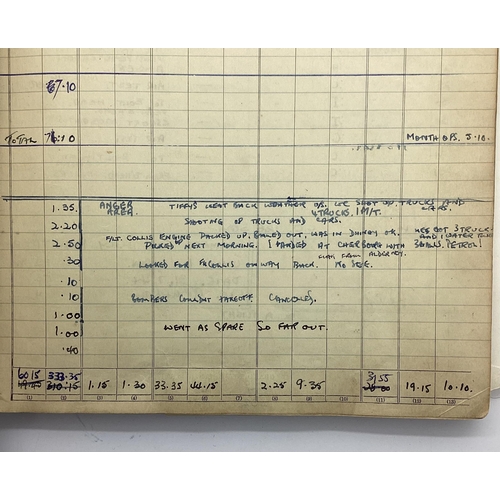 67.10
TOTAL 76.10 MONTH OPS. 5.10.
1.35. ANGER AREA. TIFFYS WENT BACK WEATHER WE SHOT UP TRUCKS AND CARS.
4 TRUCKS. 1 M/T.
2.20 SHOOTING UP TRUCKS AND CARS.
F/LT. COLLIS ENGINE PACKED UP. BALED OUT. WAS IN DINGHY OK. WE GOT STRUCK
AND WATER
2.50 PICKED UP NEXT MORNING. I LANDED AT CHERBOURG WITH 3 GALLS. PETROL!
FROM ALDERNEY.
.30 LOOKED FOR COLLIS ON WAY BACK. NO SEE.
.10
.10 BOMBERS COULDN'T TAKEOFF. CANCELLED.
1.00
1.00 WENT AS SPARE SO FAR OUT.
.40
60.15 333.35 1.15 1.30 33.35 44.15 2.25 9.35 31.55 19.15 10.10.
(1) (2) (3) (4) (5) (6) (7) (8) (9) (10) (11) (12) (13)